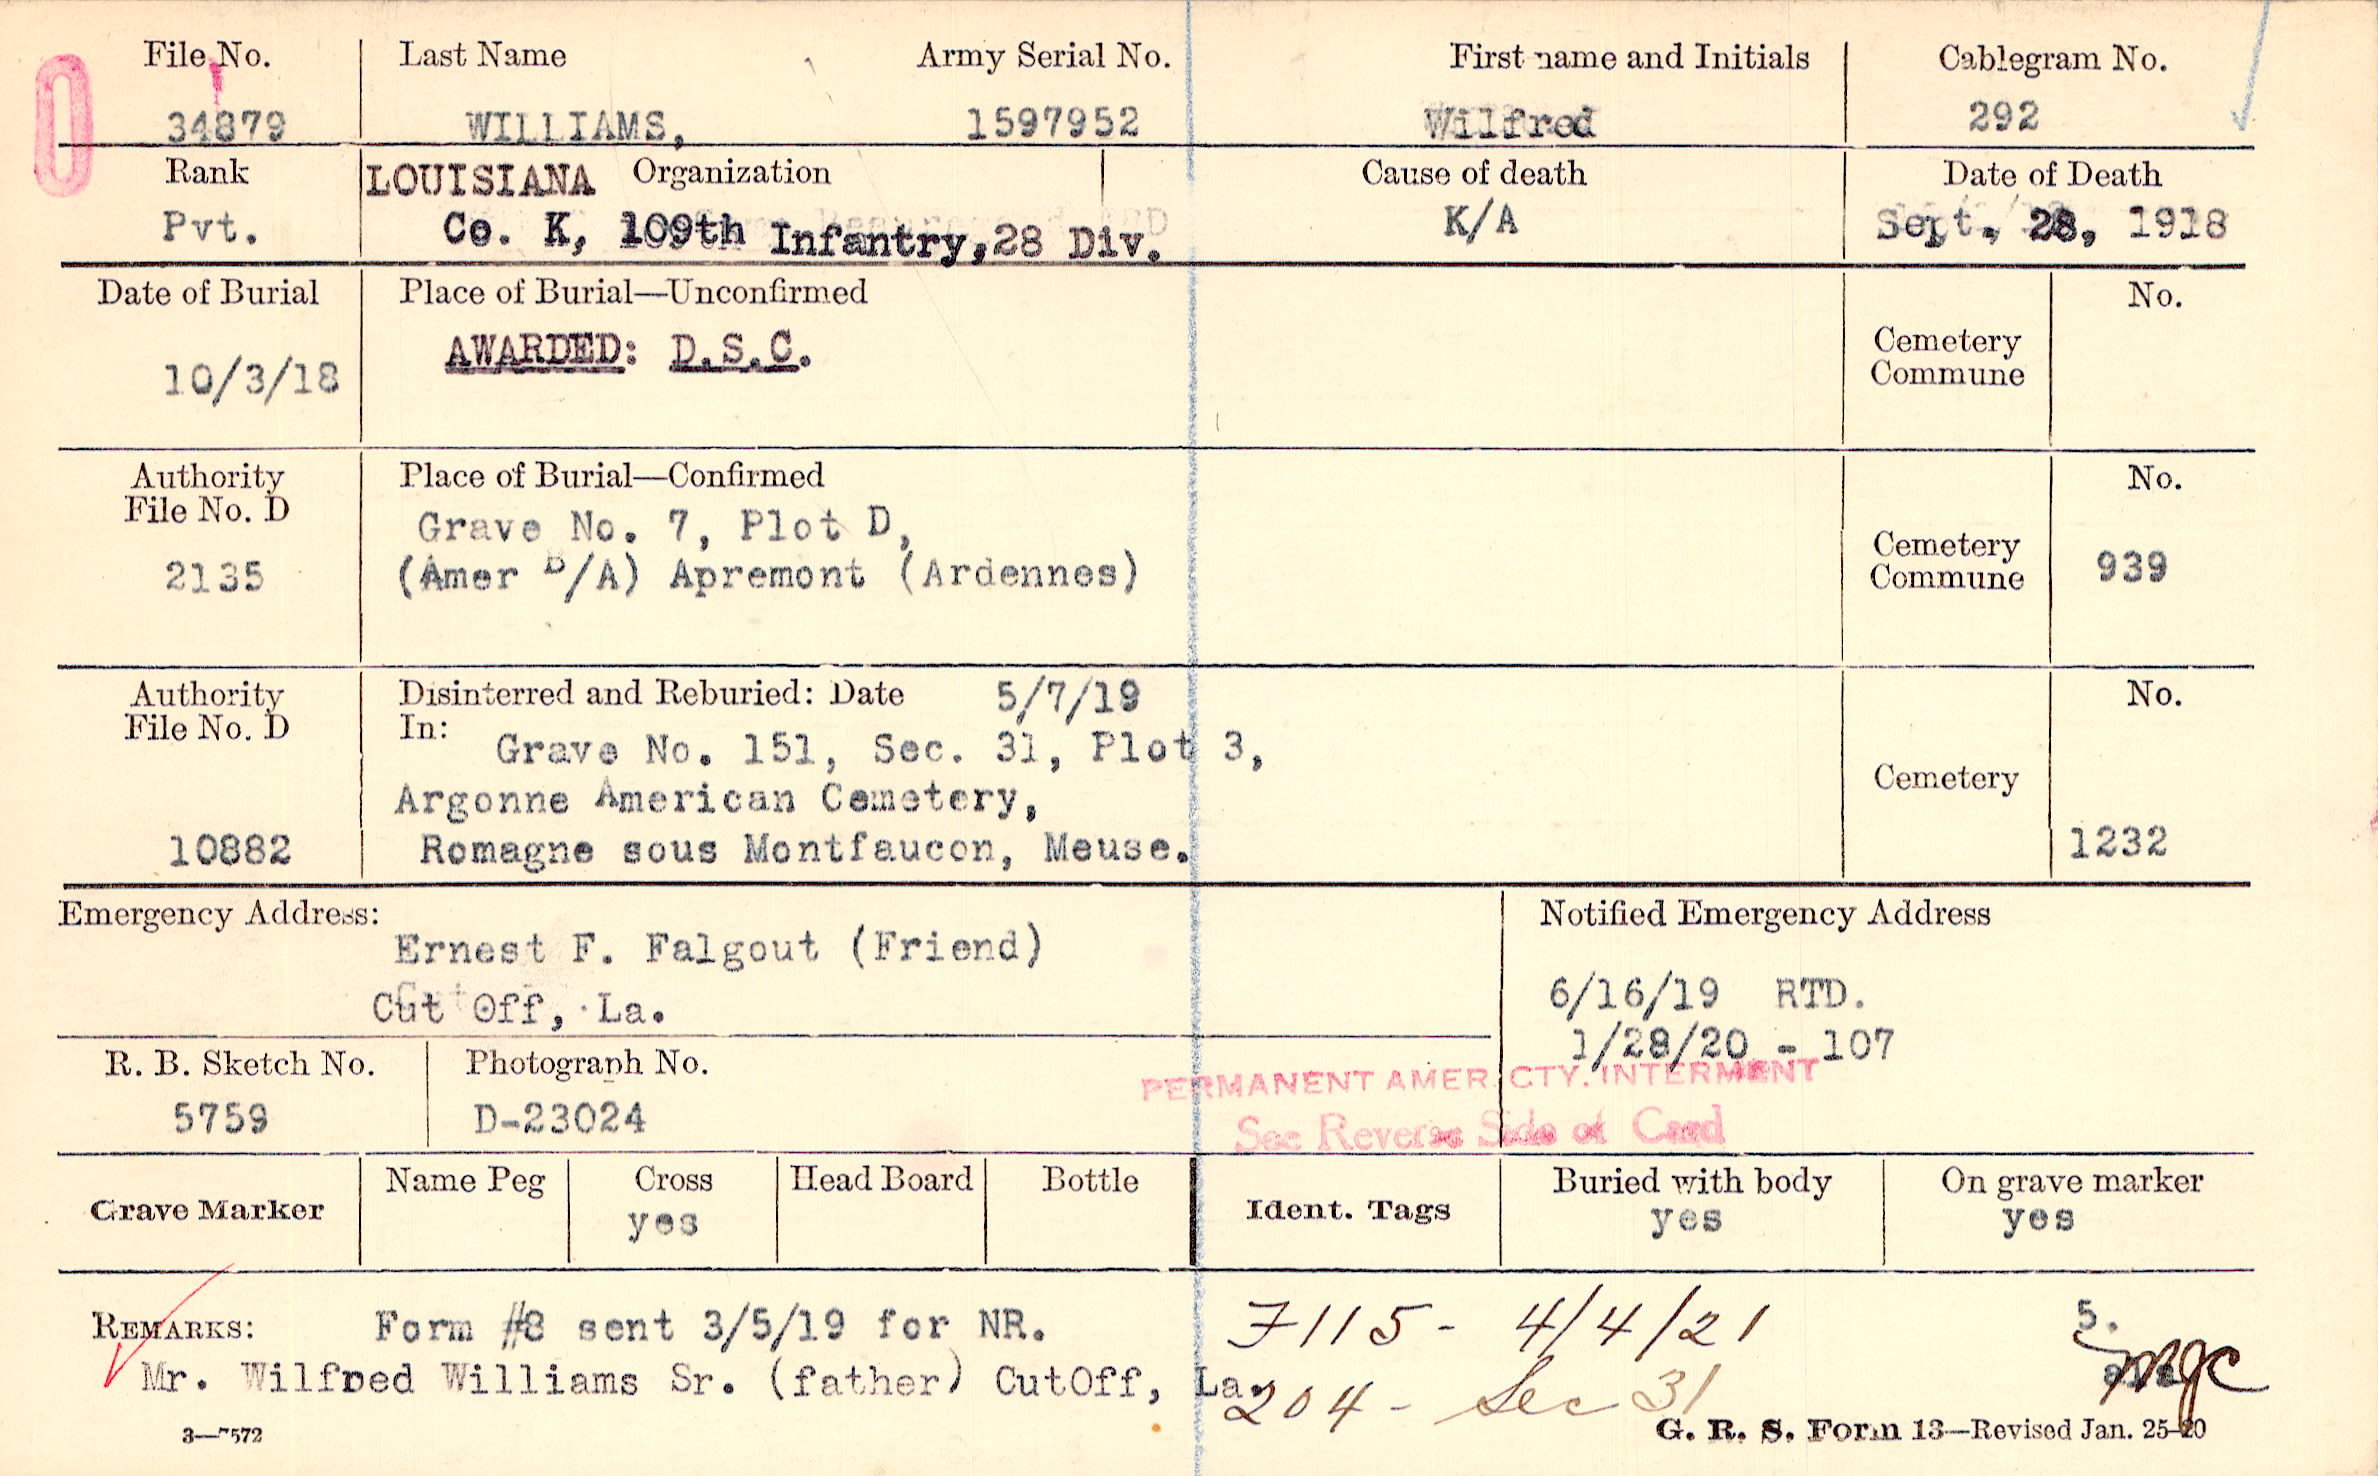 File No. Last Name Army Serial No. First name and Initials Cablegram No.
34879 WILLIAMS, 1597952 Wilfred 292
Rank LOUISIANA Organization Cause of death Date of Death
Pvt. Co. K, 109th Infantry, 28 Div. K/A Sept. 28, 1918
Date of Burial Place of Burial—Unconfirmed No.
AWARDED: D.S.C. Cemetery
10/3/18 Commune
Authority Place of Burial—Confirmed No.
File No. D Grave No. 7, Plot D,
2135 (Amer B/A) Apremont (Ardennes) Cemetery
Commune 939
Authority Disinterred and Reburied: Date 5/7/19 No.
File No. D In:
Grave No. 151, Sec. 31, Plot 3,
Argonne American Cemetery, Cemetery
10882 Romagne sous Montfaucon, Meuse. 1232
Emergency Address: Notified Emergency Address
Ernest F. Falgout (Friend)
Cut Off, La. 6/16/19 RTD.
1/28/20 - 107
R. B. Sketch No. Photograph No.
PERMANENT AMER. CTY. INTERMENT
5759 D-23024 See Reverse Side of Card
Grave Marker Name Peg Cross Head Board Bottle Ident. Tags Buried with body On grave marker
yes yes yes
REMARKS: Form #8 sent 3/5/19 for NR. F115- 4/4/21 5.
Mr. Wilfred Williams Sr. (father) CutOff, La. 204 - Sec 31 mgc
3—7572 G. R. S. Form 13—Revised Jan. 25-20